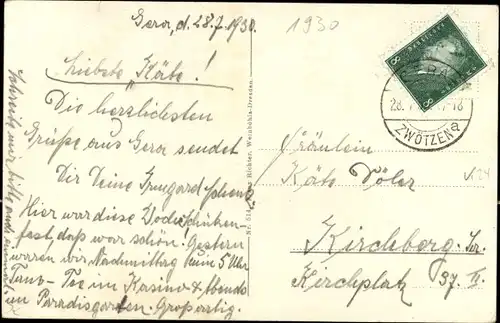 Gera, d. 28.7.1930.
1930
Liebste Käte!
Die herzlichsten
Grüße aus Gera sendet
Dir Deine Irmgard
Hier war diese Woche Schützen-
fest, das war schön. Gestern
waren wir Nachmittag zum 5 Uhr
Tanz-Tee im Kasino & Abends
im Paradisgarten. Großartig.
Schreib mir bitte auch einmal
Walter Richter, Weinböhla-Dresden
8
8
28.7
-18
ZWÖTZEN
Fräulein
Käte
Kirchberg Sa.
Kirchplatz 37. II.